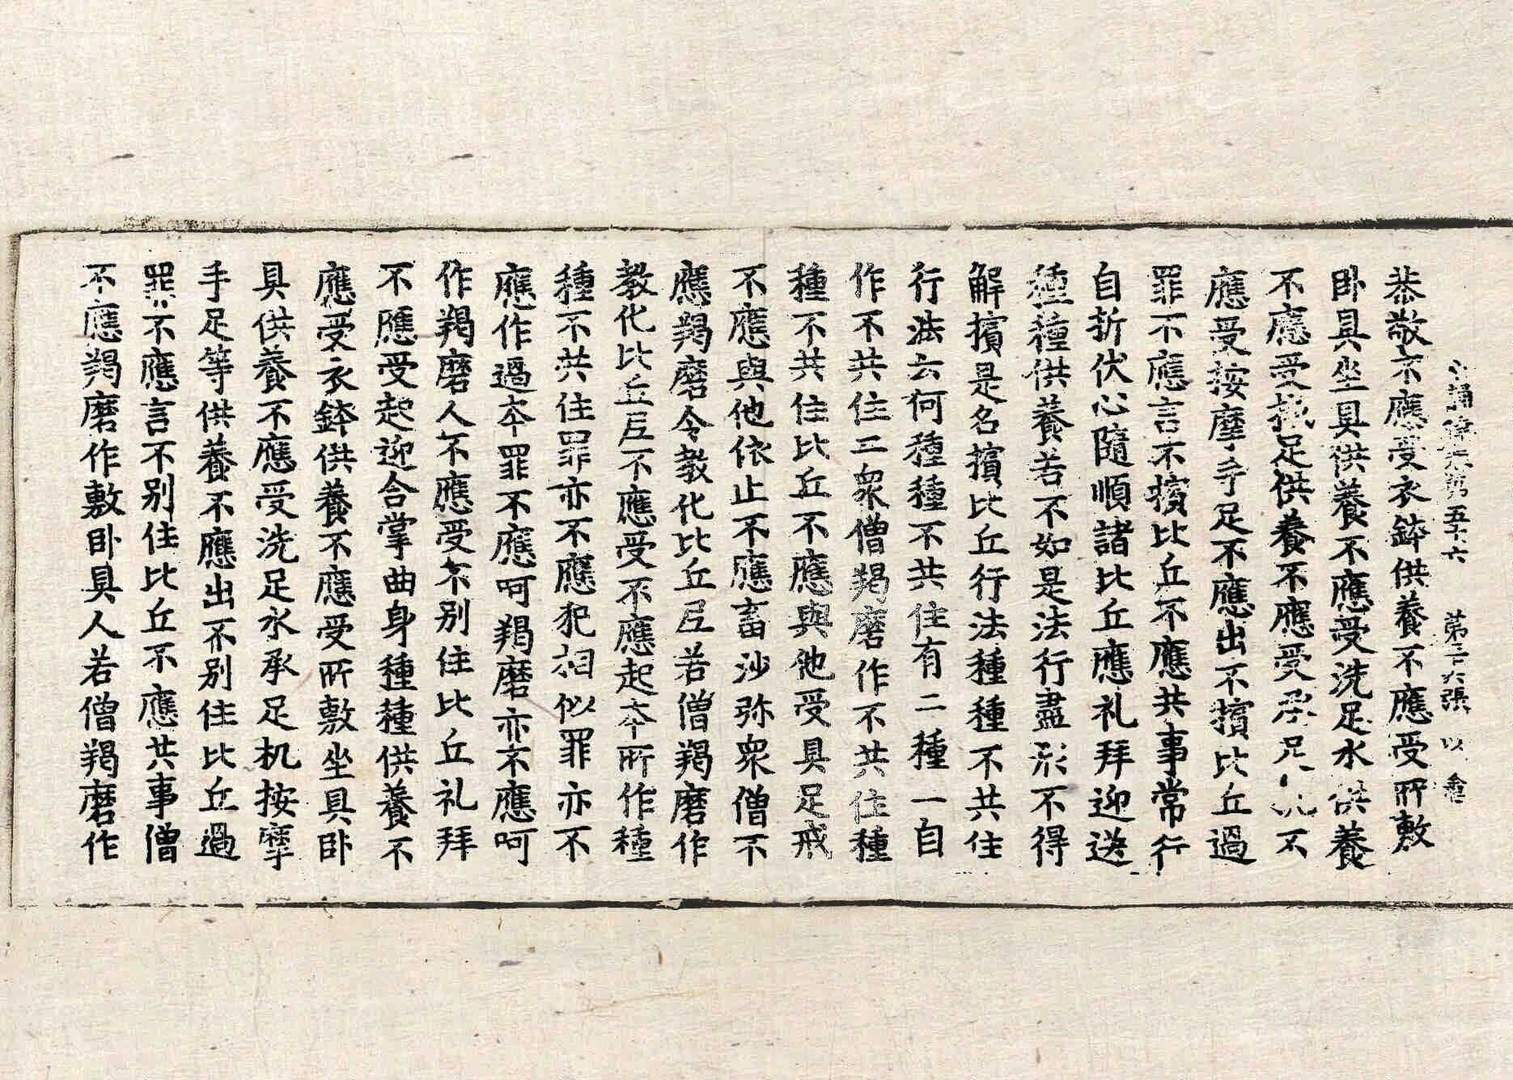 十誦律卷第五十六　第二十六張　以　禽
恭敬不應受衣鉢供養不應受所敷
卧具坐具供養不應受洗足水供養
不應受拭足供養不應受承足机不
應受按摩手足不應出不擯比丘過
罪不應言不擯比丘不應共事常行
自折伏心隨順諸比丘應礼拜迎送
種種供養若不如是法行盡形不得
解擯是名擯比丘行法種種不共住
行法云何種種不共住有二種一自
作不共住二衆僧羯磨作不共住種
種不共住比丘不應與他受具足戒
不應與他依止不應畜沙弥衆僧不
應羯磨令教化比丘尼若僧羯磨作
教化比丘尼不應受不應起夲所作種
種不共住罪亦不應犯相似罪亦不
應作過夲罪不應呵羯磨亦不應呵
作羯磨人不應受不别住比丘礼拜
不應受起迎合掌曲身種種供養不
應受衣鉢供養不應受所敷坐具卧
具供養不應受洗足水承足机按摩
手足等供養不應出不别住比丘過
罪不應言不别住比丘不應共事僧
不應羯磨作敷卧具人若僧羯磨作